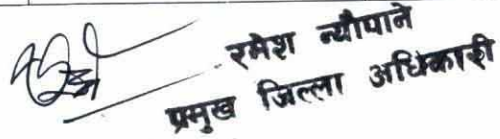 रमेश न्यौपाने
प्रमुख जिल्ला अधिकारी